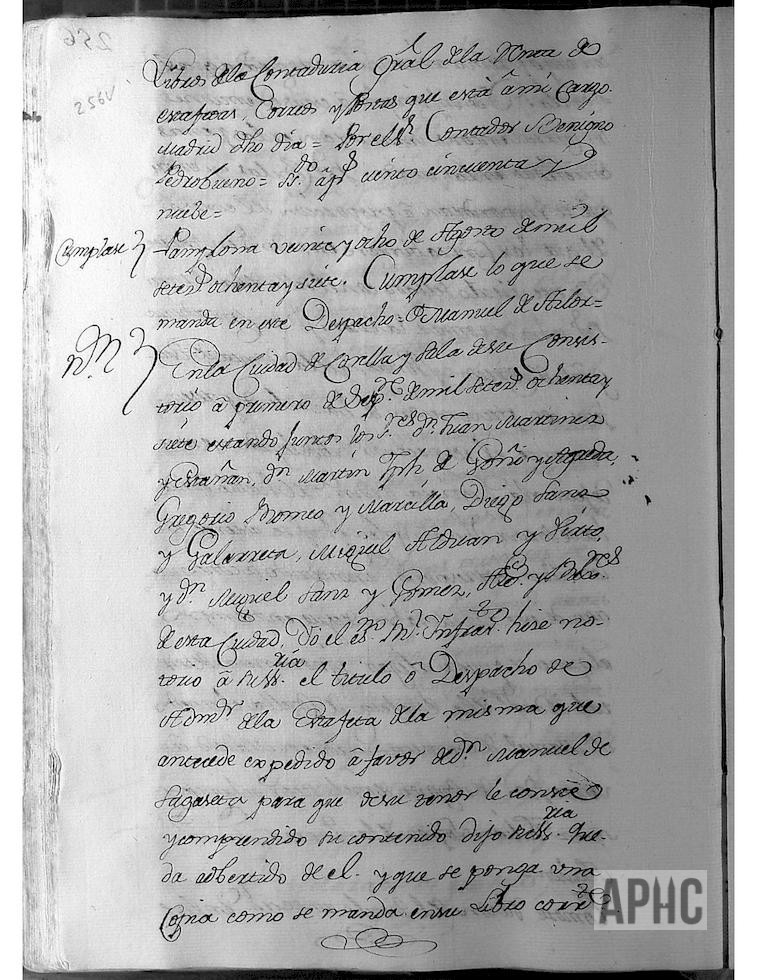 256
256v
Libros de la Contaduria Gral. de la Renta de
estafetas, Correos y Postas que està à mi Cargo.
Madrid dho dia = Por el Sr. Contador Benigno
Pedro Bueno = ciento cincuenta y
nuebe =
Cumplase Pamplona veinte y ocho de Agosto de mil
setezs. ochenta y siete. Cumplase lo que se
manda en este Despacho = Dn. Manuel de Azlor =
En la Ciudad de Corella y Sala de su Consis-
torio à primero de Sepre. de mil setezs. ochenta y
siete estando juntos los Sres. Dn. Juan Martinez
y Dn. Martin Jph de Goñi y
Gregorio Romeo y Marcilla, Diego Sanz
y Galarreta, Miguel Alduan y Virto,
y Dn. Miguel Sanz y Gomez, Alde. y Rexres.
de esta Ciudad, Yo el esno. Rl. Infrato. hize no-
torio à su SSria. el titulo ô Despacho de
Admor. de la Estafeta de la misma que
antecede expedido à favor de Dn. Manuel de
Sagaseta para que de su tenor le conste
y comprendido su contenido dijo su SSria. que-
da adbertido de el. y que se ponga una
Copia como se manda en su Libro corrte.
APHC